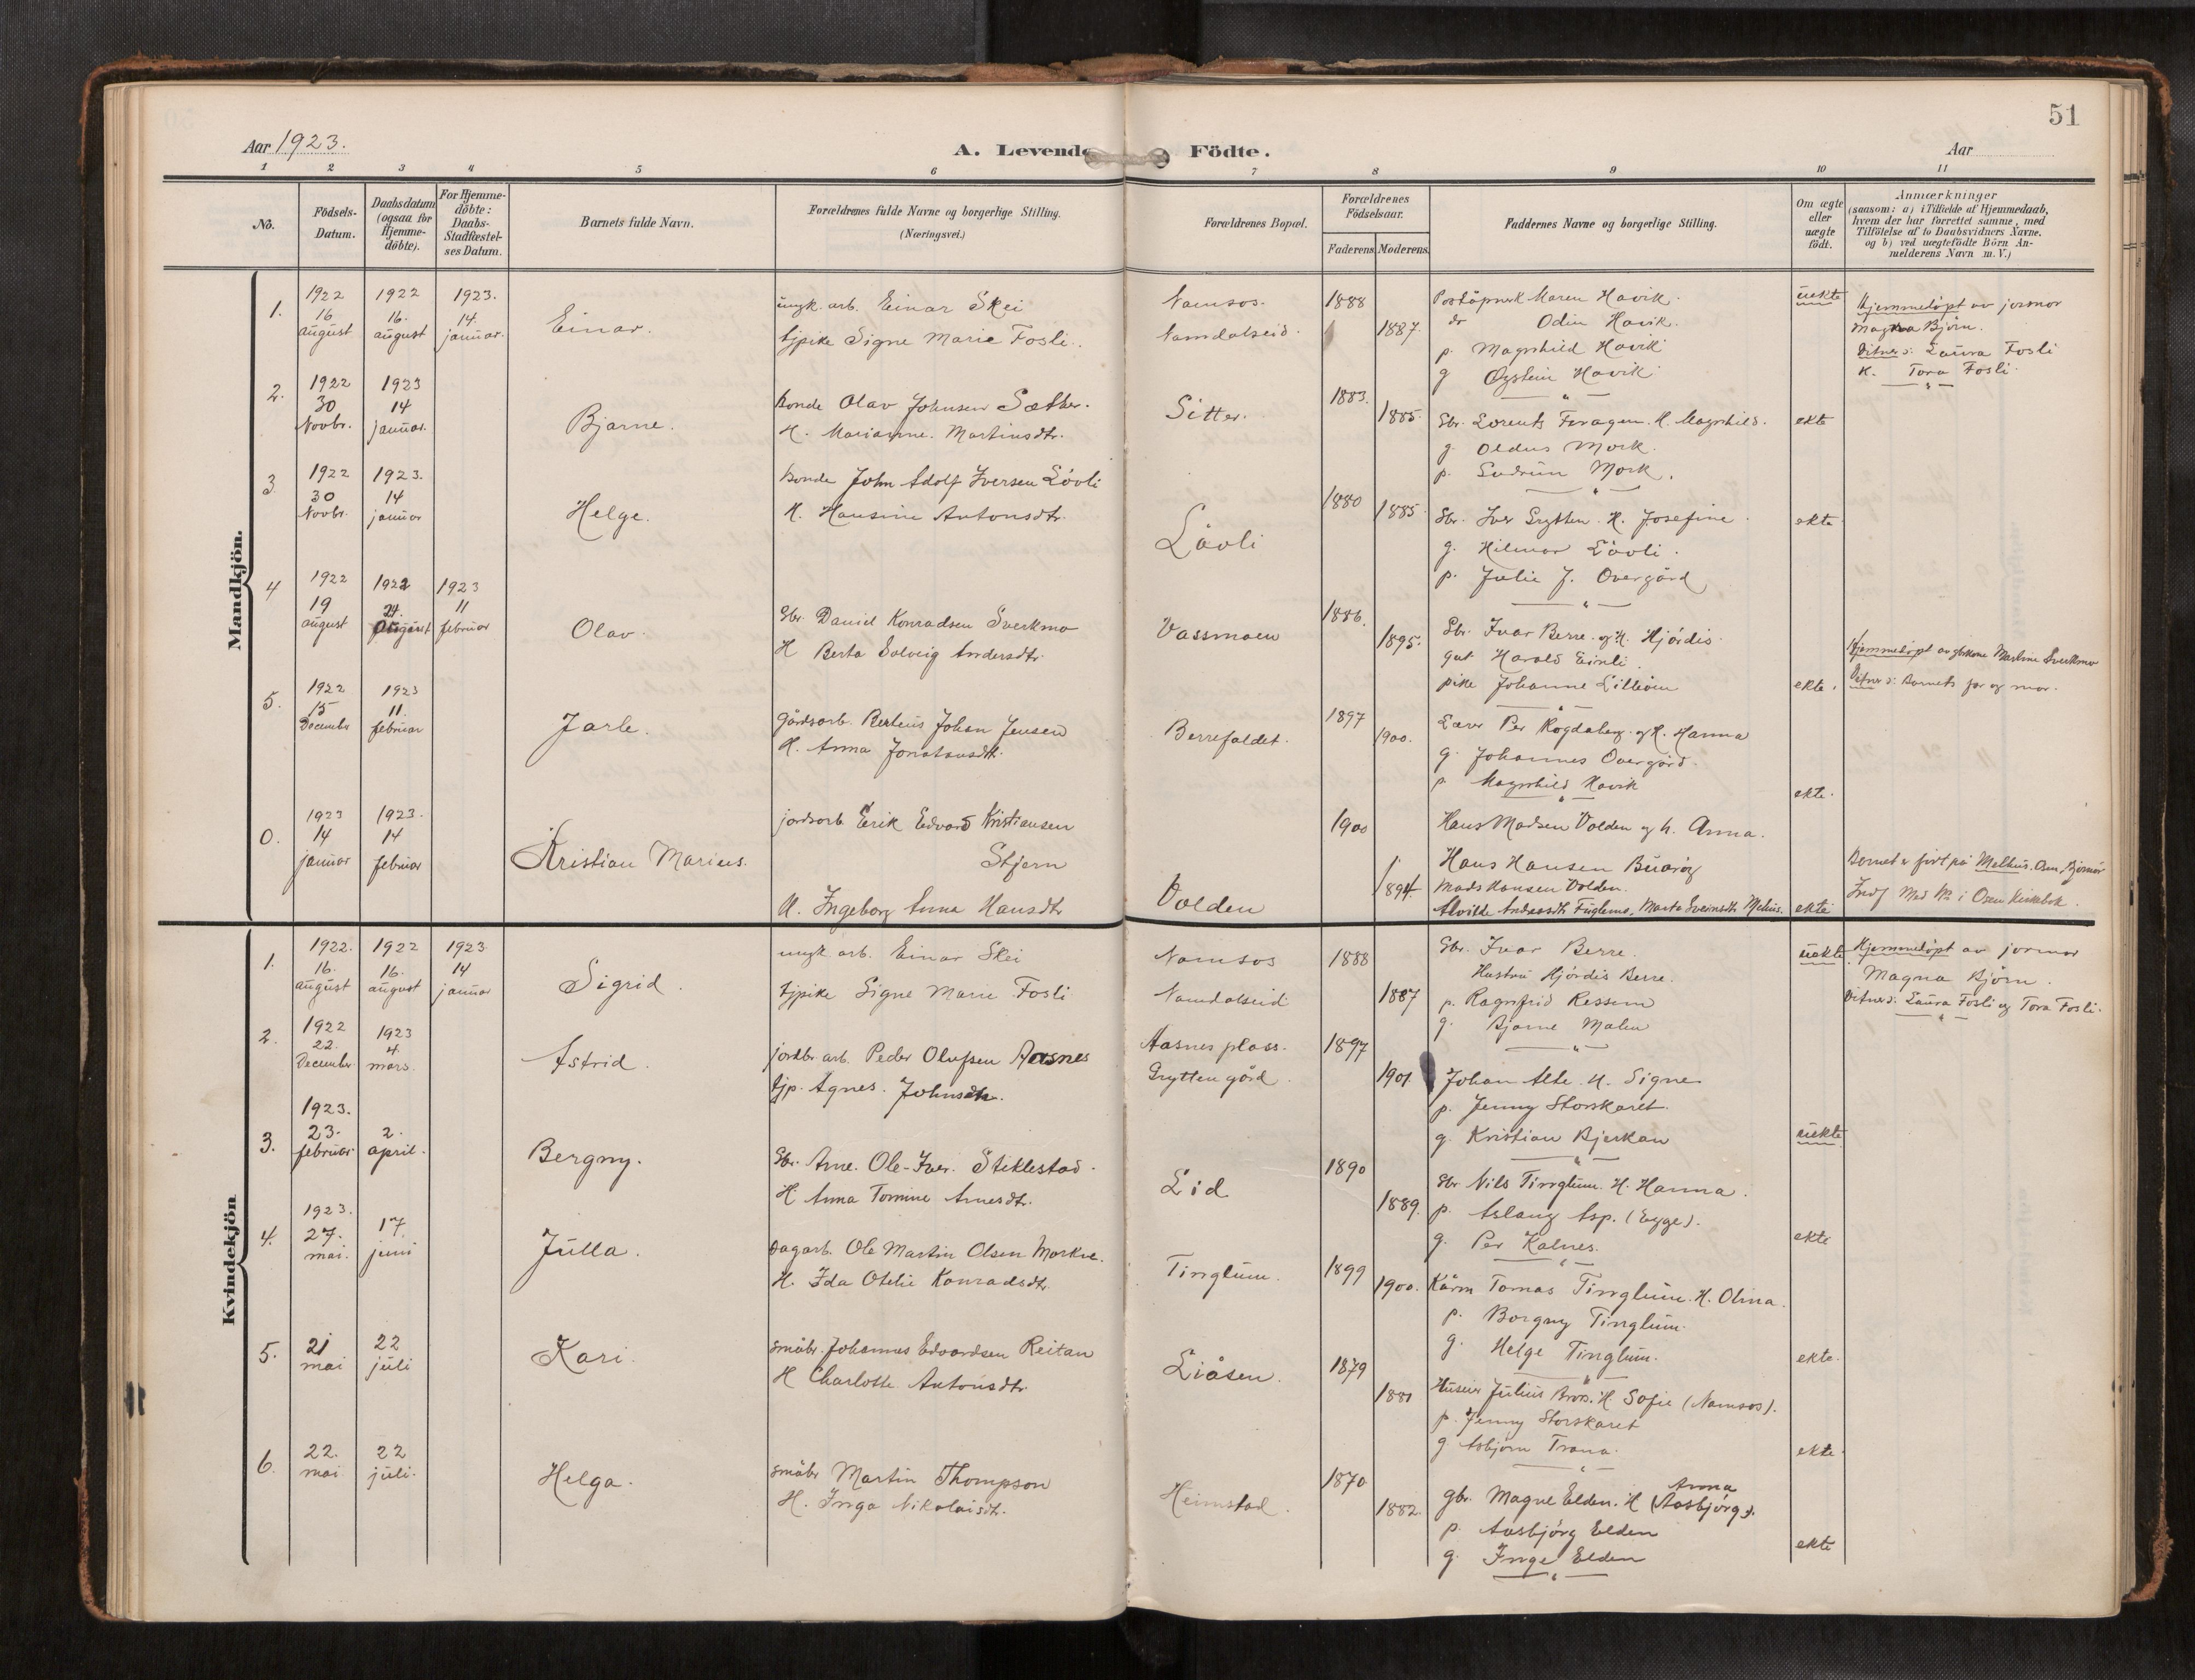 51
Aar 1923.
A. Levende Födte.
Aar
1 2 3 4 5 6 7 8 9 10 11
No.
Födsels-Datum.
Daabsdatum (ogsaa for Hjemme-döbte).
For Hjemme-döbte: Daabs-Stadfæstel-ses Datum.
Barnets fulde Navn.
Forældrenes fulde Navne og borgerlige Stilling.
(Næringsvei.)
Forældrenes Bopæl.
Forældrenes Födselsaar.
Faderens Moderens
Faddernes Navne og borgerlige Stilling.
Om ægte eller uægte födt.
Anmærkninger
(saasom: a) i Tilfælde af Hjemmedaab,
hvem der har forrettet samme, med
Tilföielse af to Daabsvidners Navne,
og b) ved uægtefödte Börn An-
melderens Navn m. V.)
Mandkjön.
1.
1922 16. august
1922 16. august
1923. 14. januar.
Einar.
ungk. arb. Einar Skei
tjpike Signe Marie Fosli.
Namsos.
Namdalseid.
1888
1887.
Poståpnersk Maren Havik.
do Odin Havik.
p. Magnhild Havik
g Øystein Havik
uekte
Hjemmedöpt av jormor
Magna Bjørn.
Vitner: Laura Fosli
K. Tora Fosli.
2.
1922 30 Novbr.
1923 14 januar.
Bjarne.
Bonde Olav Johnsen Sæther.
H. Marianne Martinsdtr.
Sitter.
1883.
1885.
Gbr. Lorents Finagen. H. Magnhild.
g. Oldus Mork.
p. Gudrun Mork.
ekte
3
1922 30 Novbr.
1923. 14 januar
Helge.
Bonde John Adolf Iversen Lövli
H. Hansine Antonsdtr.
Lövli
1880
1885
Gbr. Iver Grytten. H. Josefine
g. Hilmar Lövli.
p. Julie J. Overgård
ekte
4
1922 19 august
1922 24. august
1923 11 februar
Olav.
Gbr. Daniel Konradsen Sverkmo
H Berta Solveig Andersdtr.
Vassmoen
1886.
1895.
Gbr. Ivar Berre og H. Hjördis
gut Harald Eimli
pike Johanne Lilleöien
ekte.
Hjemmedöpt av gbkone Martine Sverkmo
Vitner: Barnets far og mor.
5.
1922 15 December
1923 11. februar
Jarle.
Gårdsarb. Berteus Johan Jensen
H. Anna Jonatansdtr.
Berrefaldet.
1897
1900.
Lærer Per Rogdaberg og H. Hanna
g. Johannes Overgård.
p. Magnhild Havik
ekte.
0.
1923 14 januar
1923. 14 februar
Kristian Marius.
jordsarb Erik Edvard Kristiansen
Stjern
H. Ingeborg Anna Hansdtr
Volden
1900
1894.
Hans Madsen Volden og h. Anna.
Hans Hansen Buarøy
Mads Hansen Volden.
Alvilde Andreasdtr Fuglemo, Marta Sveinsdtr Melius.
ekte
Barnet er født på Melhus. Osen, Bjørnør
Indf Med No i Osen Kirkebok.
Kvindekjön
1.
1922. 16. august
1922 16. august
1923 14 januar
Sigrid.
ungk. arb. Einar Skei
tjpike Signe Marie Fosli
Namsos
Namdalseid
1888
1887
Gbr. Ivar Berre.
Hustru Hjördis Berre.
p. Ragnfrid Ressem
g. Bjarne Malm
uekte
Hjemmedöpt av jormor
Magna Bjørn.
Vitner: Laura Fosli og Tora Fosli.
2.
1922 22. December
1923 4. mars.
Astrid.
jordbr. arb. Peder Olufsen Aasnes
tjp. Agnes. Johnsdtr.
Aasnes plass.
Gryttengård.
1897
1901.
Johan Alte. H. Signe
p. Jenny Storskaret.
g. Kristian Bjerkan
uekte
3.
1923. 23. februar
2. april.
Bergny.
Gbr. Arne Ole-Iver. Stiklestad.
H. Anna Tomine Arnesdtr.
Lid
1890
1889.
Gbr Nils Tinglum. H. Hanna.
p. Aslaug Asp. (Egge).
g. Per Kalnes.
ekte
4.
1923. 27. mai.
17. juni
Julla.
Dagarb. Ole Martin Olsen Morkve.
H. Ida Otelie Konradsdtr.
Tinglum.
1899
1900.
Kårm Tomas Tinglum. H. Olina.
p. Borgny Tinglum.
g. Helge Tinglum.
ekte.
5.
21 mai
22 juli
Kari.
småbr. Johannes Edvardsen Reitan
H Charlotte Antonsdtr.
Liåsen.
1879
1881
Huseier Julius Bros. H. Sofie (Namsos).
p. Jenny Storskaret
g Asbjørn Trana.
ekte.
6.
22. mai
22 juli.
Helga.
småbr Martin Thompson
H. Inga Nikolaisdtr.
Heimstad.
1870
1882.
gbr. Magne Elden. H Anna (Aasbjørg).
p. Aasbjørg Elden
g. Inge Elden
ekte